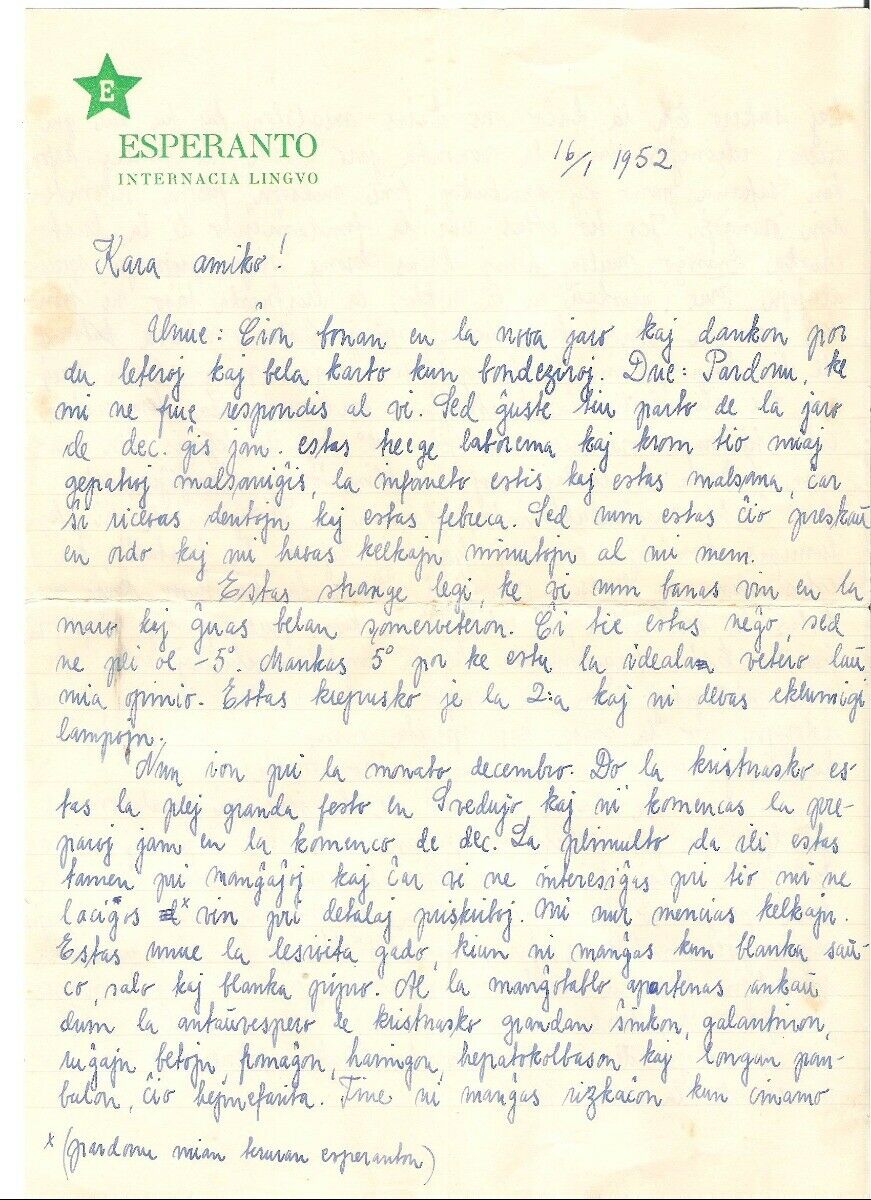 E
ESPERANTO
INTERNACIA LINGVO
16/1 1952
Kara amiko!
Unue: Ĉion bonan en la nova jaro kaj dankon por
du leteroj kaj bela karto kun bondeziroj. Due: Pardonu, ke
mi ne frue respondis al vi. Sed ĝuste tiu parto de la jaro
de dec. ĝis jan. estas treege laborema kaj krom tio miaj
gepatroj malsaniĝis, la infaneto estis kaj estas malsana, ĉar
ŝi ricevas dentojn kaj estas febreca. Sed nun estas ĉio preskaŭ
en ordo kaj mi havas kelkajn minutojn al mi mem.
Estas strange legi, ke vi nun banas vin en la
maro kaj ĝuas belan somerveteron. Ĉi tie estas neĝo, sed
ne pli ol -5°. Mankas 5° por ke estu la ideala vetero laŭ
mia opinio. Estas krepusko je la 2:a kaj ni devas eklumigi
lampojn.
Nun ion pri la monato decembro. Do la kristnasko es-
tas la plej granda festo en Svedujo kaj ni komencas la pre-
paroj jam en la komenco de dec. La plimulto da ili estas
tamen pri manĝaĵoj kaj ĉar vi ne interesiĝas pri tio mi ne
laciĝos x vin pri detalaj priskriboj. Mi nur mencias kelkajn.
Estas unue la lesivita gado, kiun ni manĝas kun blanka saŭ-
co, salo kaj blanka pipro. Al la manĝotablo apartenas ankaŭ
dum la antaŭvespero de kristnasko grandan ŝinkon, galantinon,
ruĝajn betojn, fromaĝon, haringon, hepatokolbason kaj longan pan-
bulon, ĉio hejmefarita. Fine ni manĝas rizkaĉon kun cinamo
x (pardonu mian teruran esperanton)